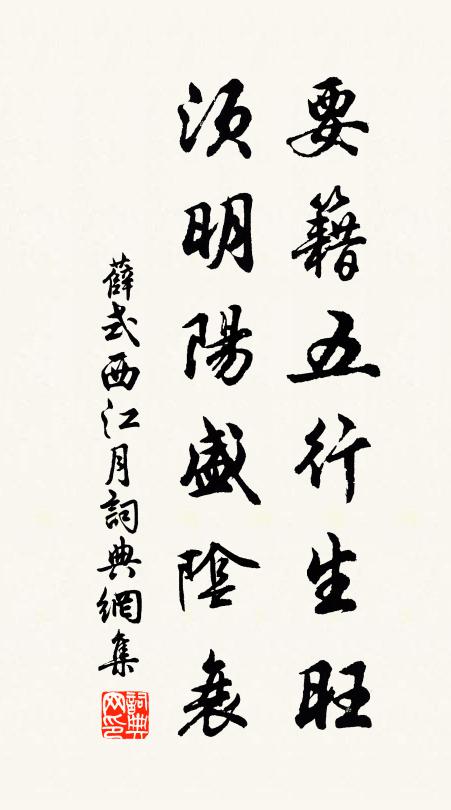 要籍五行生旺
須明陽盛陰衰
薛式西江月詞典網集
詞典網印